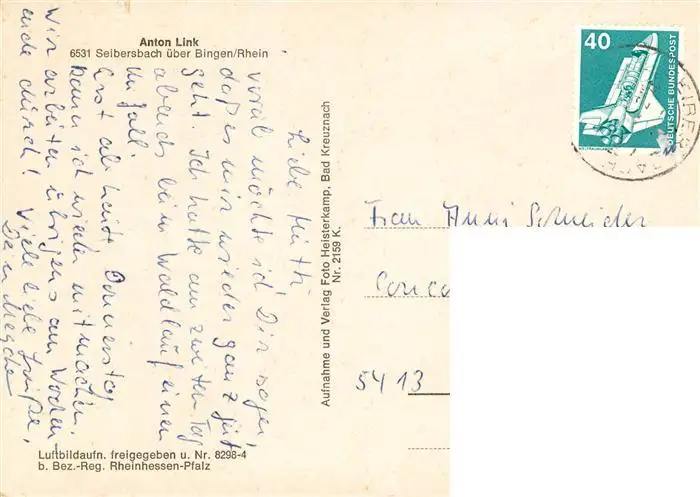 Anton Link
6531 Seibersbach über Bingen/Rhein
Liebe
vorab möchte ich Dir sagen,
daß es mir wieder ganz gut
geht. Ich hatte am zweiten Tag
abends beim Waldlauf einen
Unfall.
Erst ab heute, Donnerstag
kann ich wieder mitmachen.
Wir arbeiten übrigens am Wochen-
ende durch! Viele liebe Grüße,
Dein
Luftbildaufn. freigegeben u. Nr. 8298-4
b. Bez.-Reg. Rheinhessen-Pfalz
Aufnahme und Verlag Foto Heisterkamp, Bad Kreuznach
Nr. 2159 K.
40
DEUTSCHE BUNDESPOST
Frau Anni Schneider
5413